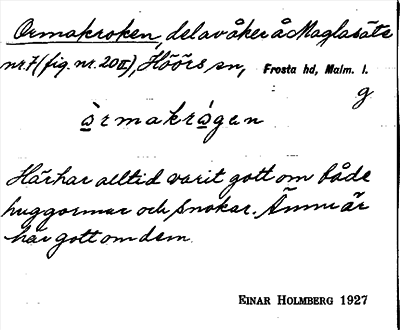 Ormakroken, del av åker å Maglasäte
nr. 7 (fig. nr. 20II), Höörs sn, Frosta hd, Malm. l.
g
òrmakrågen
Här har alltid varit gott om både
huggormar och snokar. Ännu är
här gott om dem.
EINAR HOLMBERG 1927